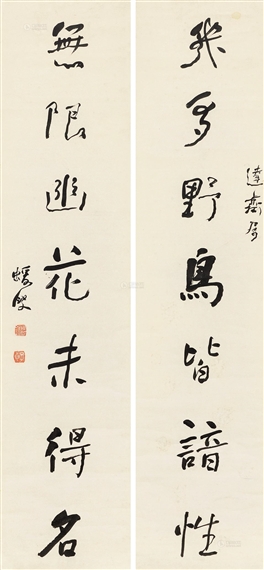 達齋屬
幾多野鳥皆諳性
無限幽花未得名
蝯叟